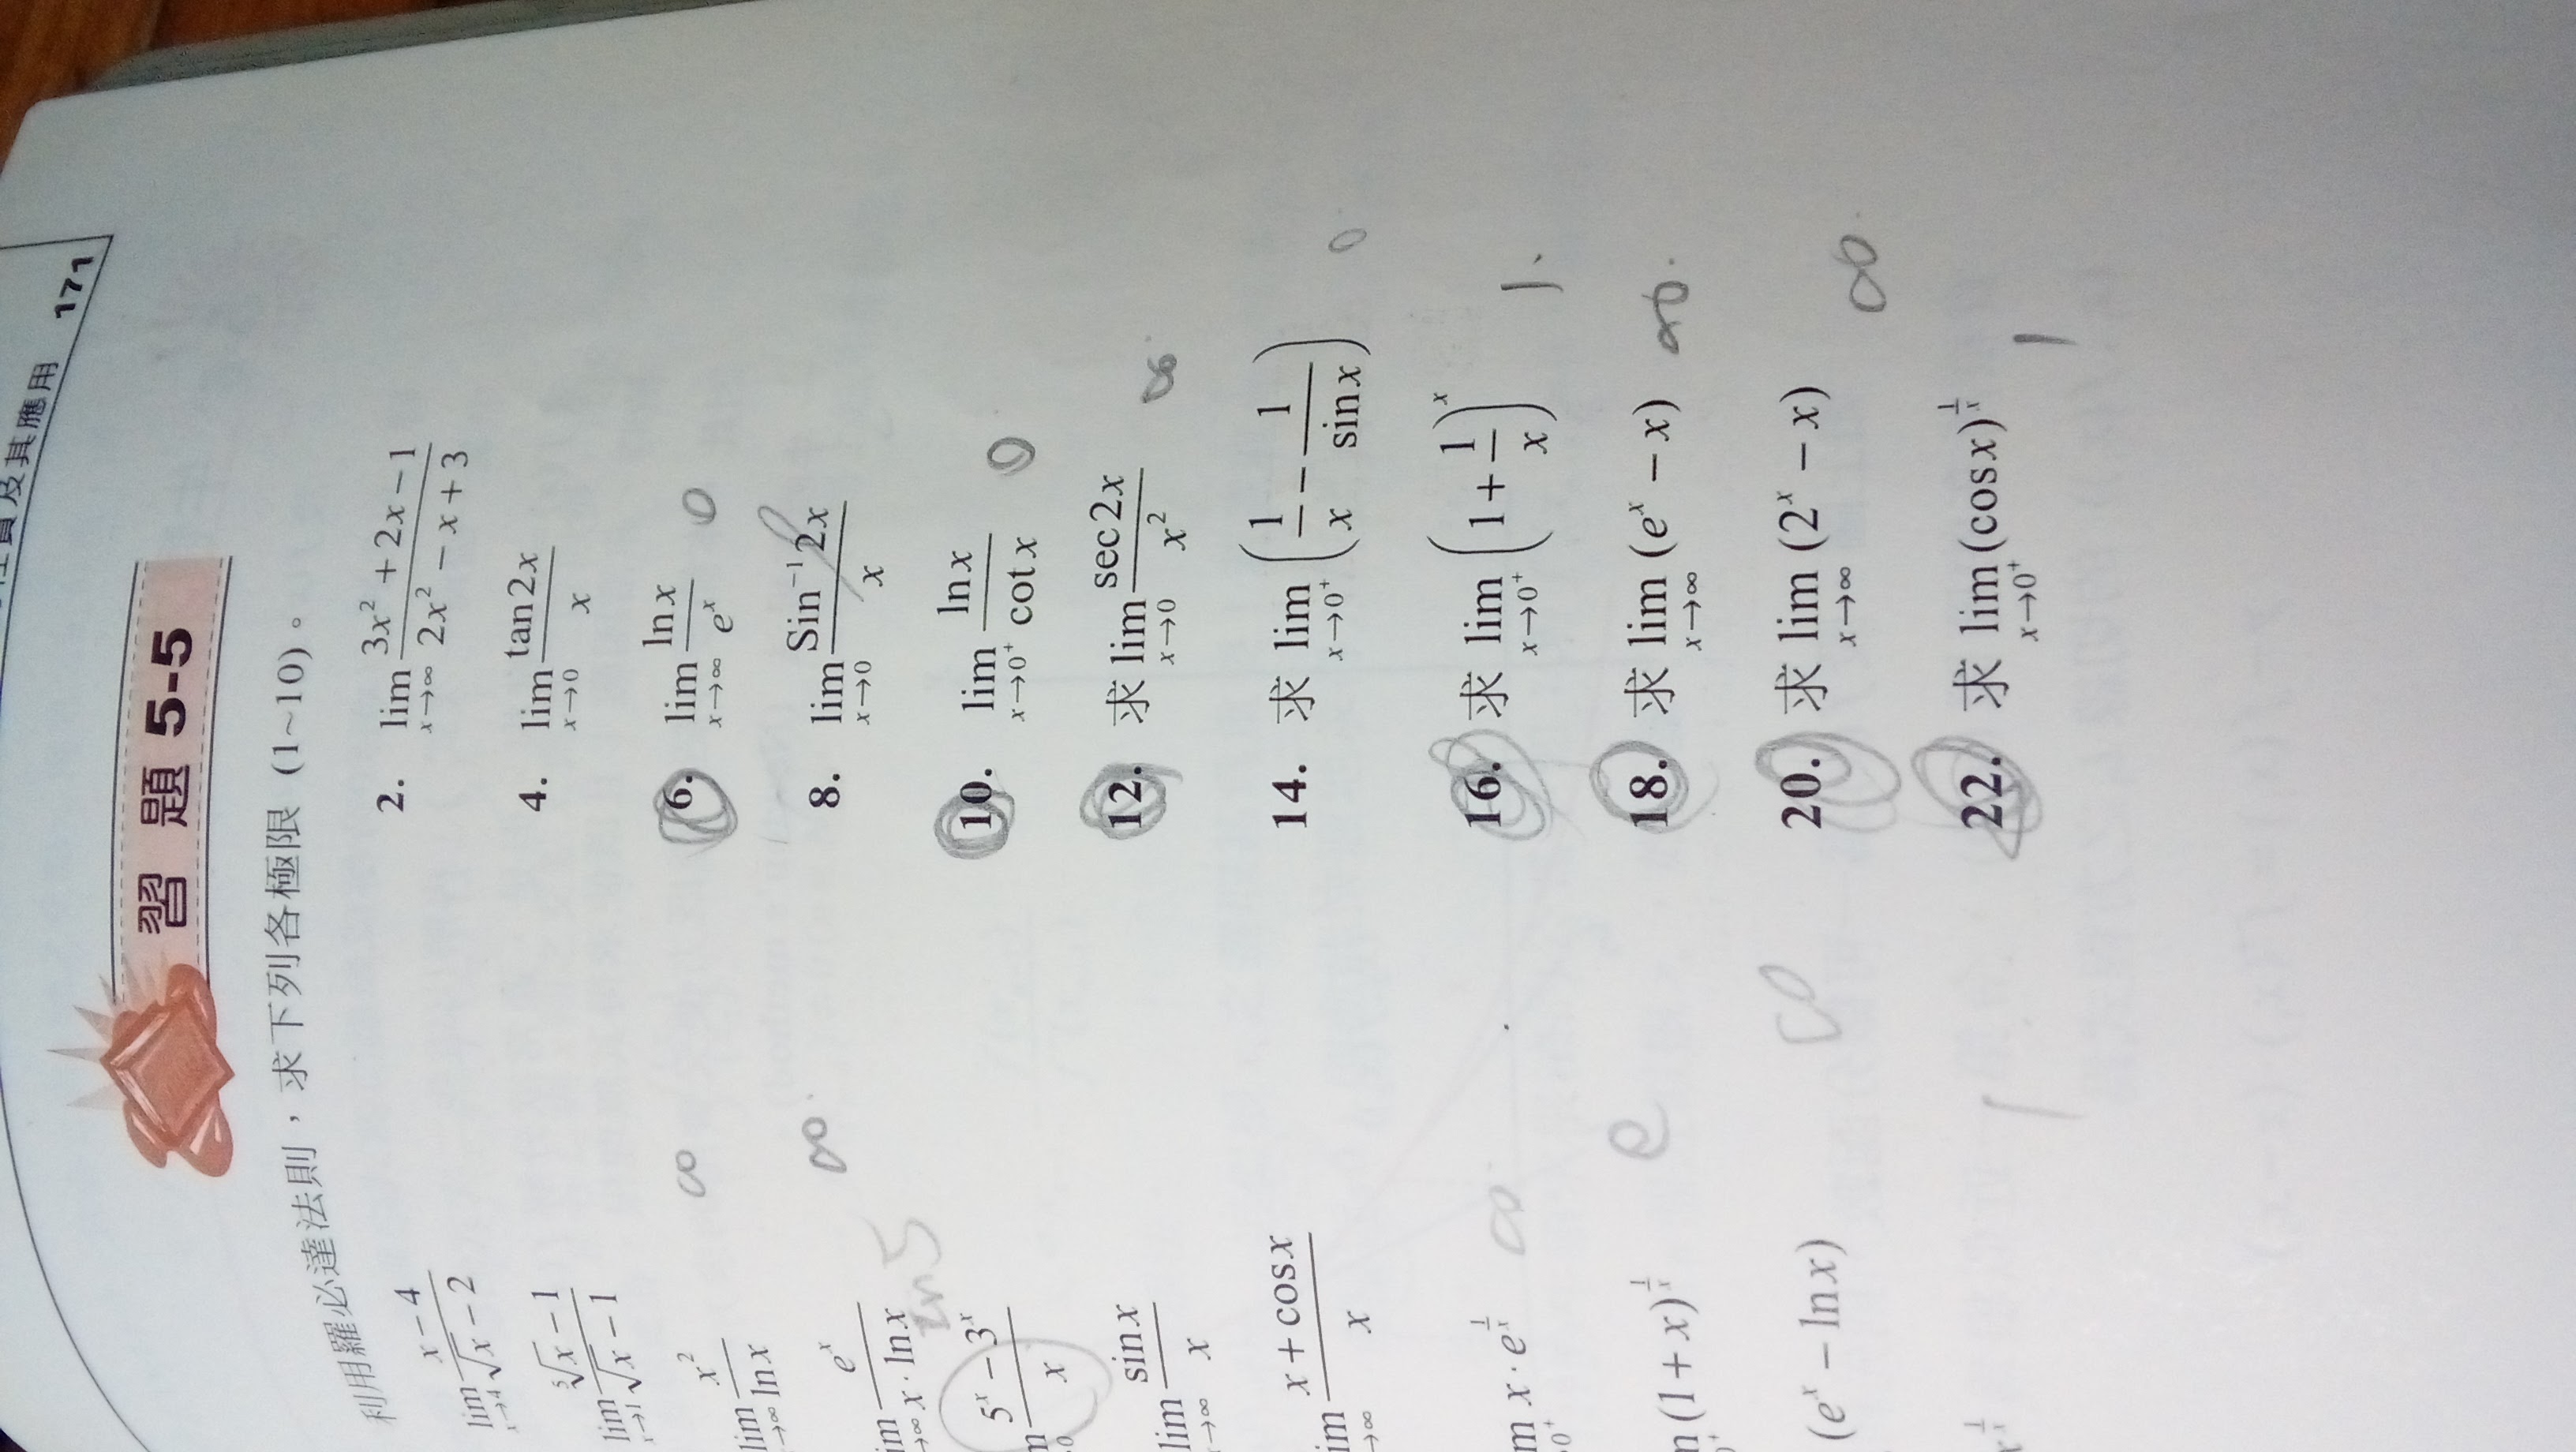 171
及其應用
習 題 5-5
利用羅必達法則，求下列各極限（1~10）。
lim x→4 (x-4)/(√x-2)
2. lim x→∞ (3x²+2x-1)/(2x²-x+3)
lim x→1 (⁵√x-1)/(√x-1)
4. lim x→0 tan2x/x
lim x→∞ x²/lnx ∞
6. lim x→∞ lnx/eˣ 0
lim x→∞ eˣ/(x·lnx) ∞.
8. lim x→0 Sin⁻¹2x/x
(5ˣ-3ˣ)/x
10. lim x→0⁺ lnx/cotx 0
lim x→∞ sinx/x
12. 求 lim x→0 sec2x/x² ∞.
im x→∞ (x+cosx)/x
14. 求 lim x→0⁺ (1/x - 1/sinx) 0
m 0⁺ x·e^(1/x) ∞
16. 求 lim x→0⁺ (1+1/x)ˣ 1.
(1+x)^(1/x) e
18. 求 lim x→∞ (eˣ-x) ∞.
(eˣ-lnx) ∞
20. 求 lim x→∞ (2ˣ-x) ∞
x^(1/x) 1
22. 求 lim x→0⁺ (cosx)^(1/x) 1